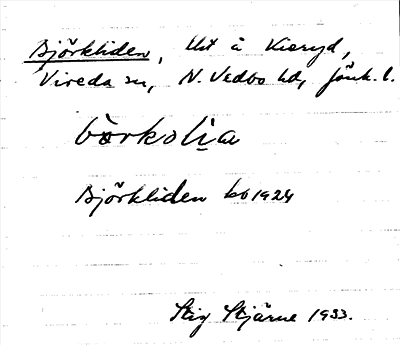 Björkliden, Ut å Kieryd,
Vireda sn, N. Vedbo hd, Jönk. l.
bòrkolia
Björkliden kb 1924
Stig Stjärne 1933.